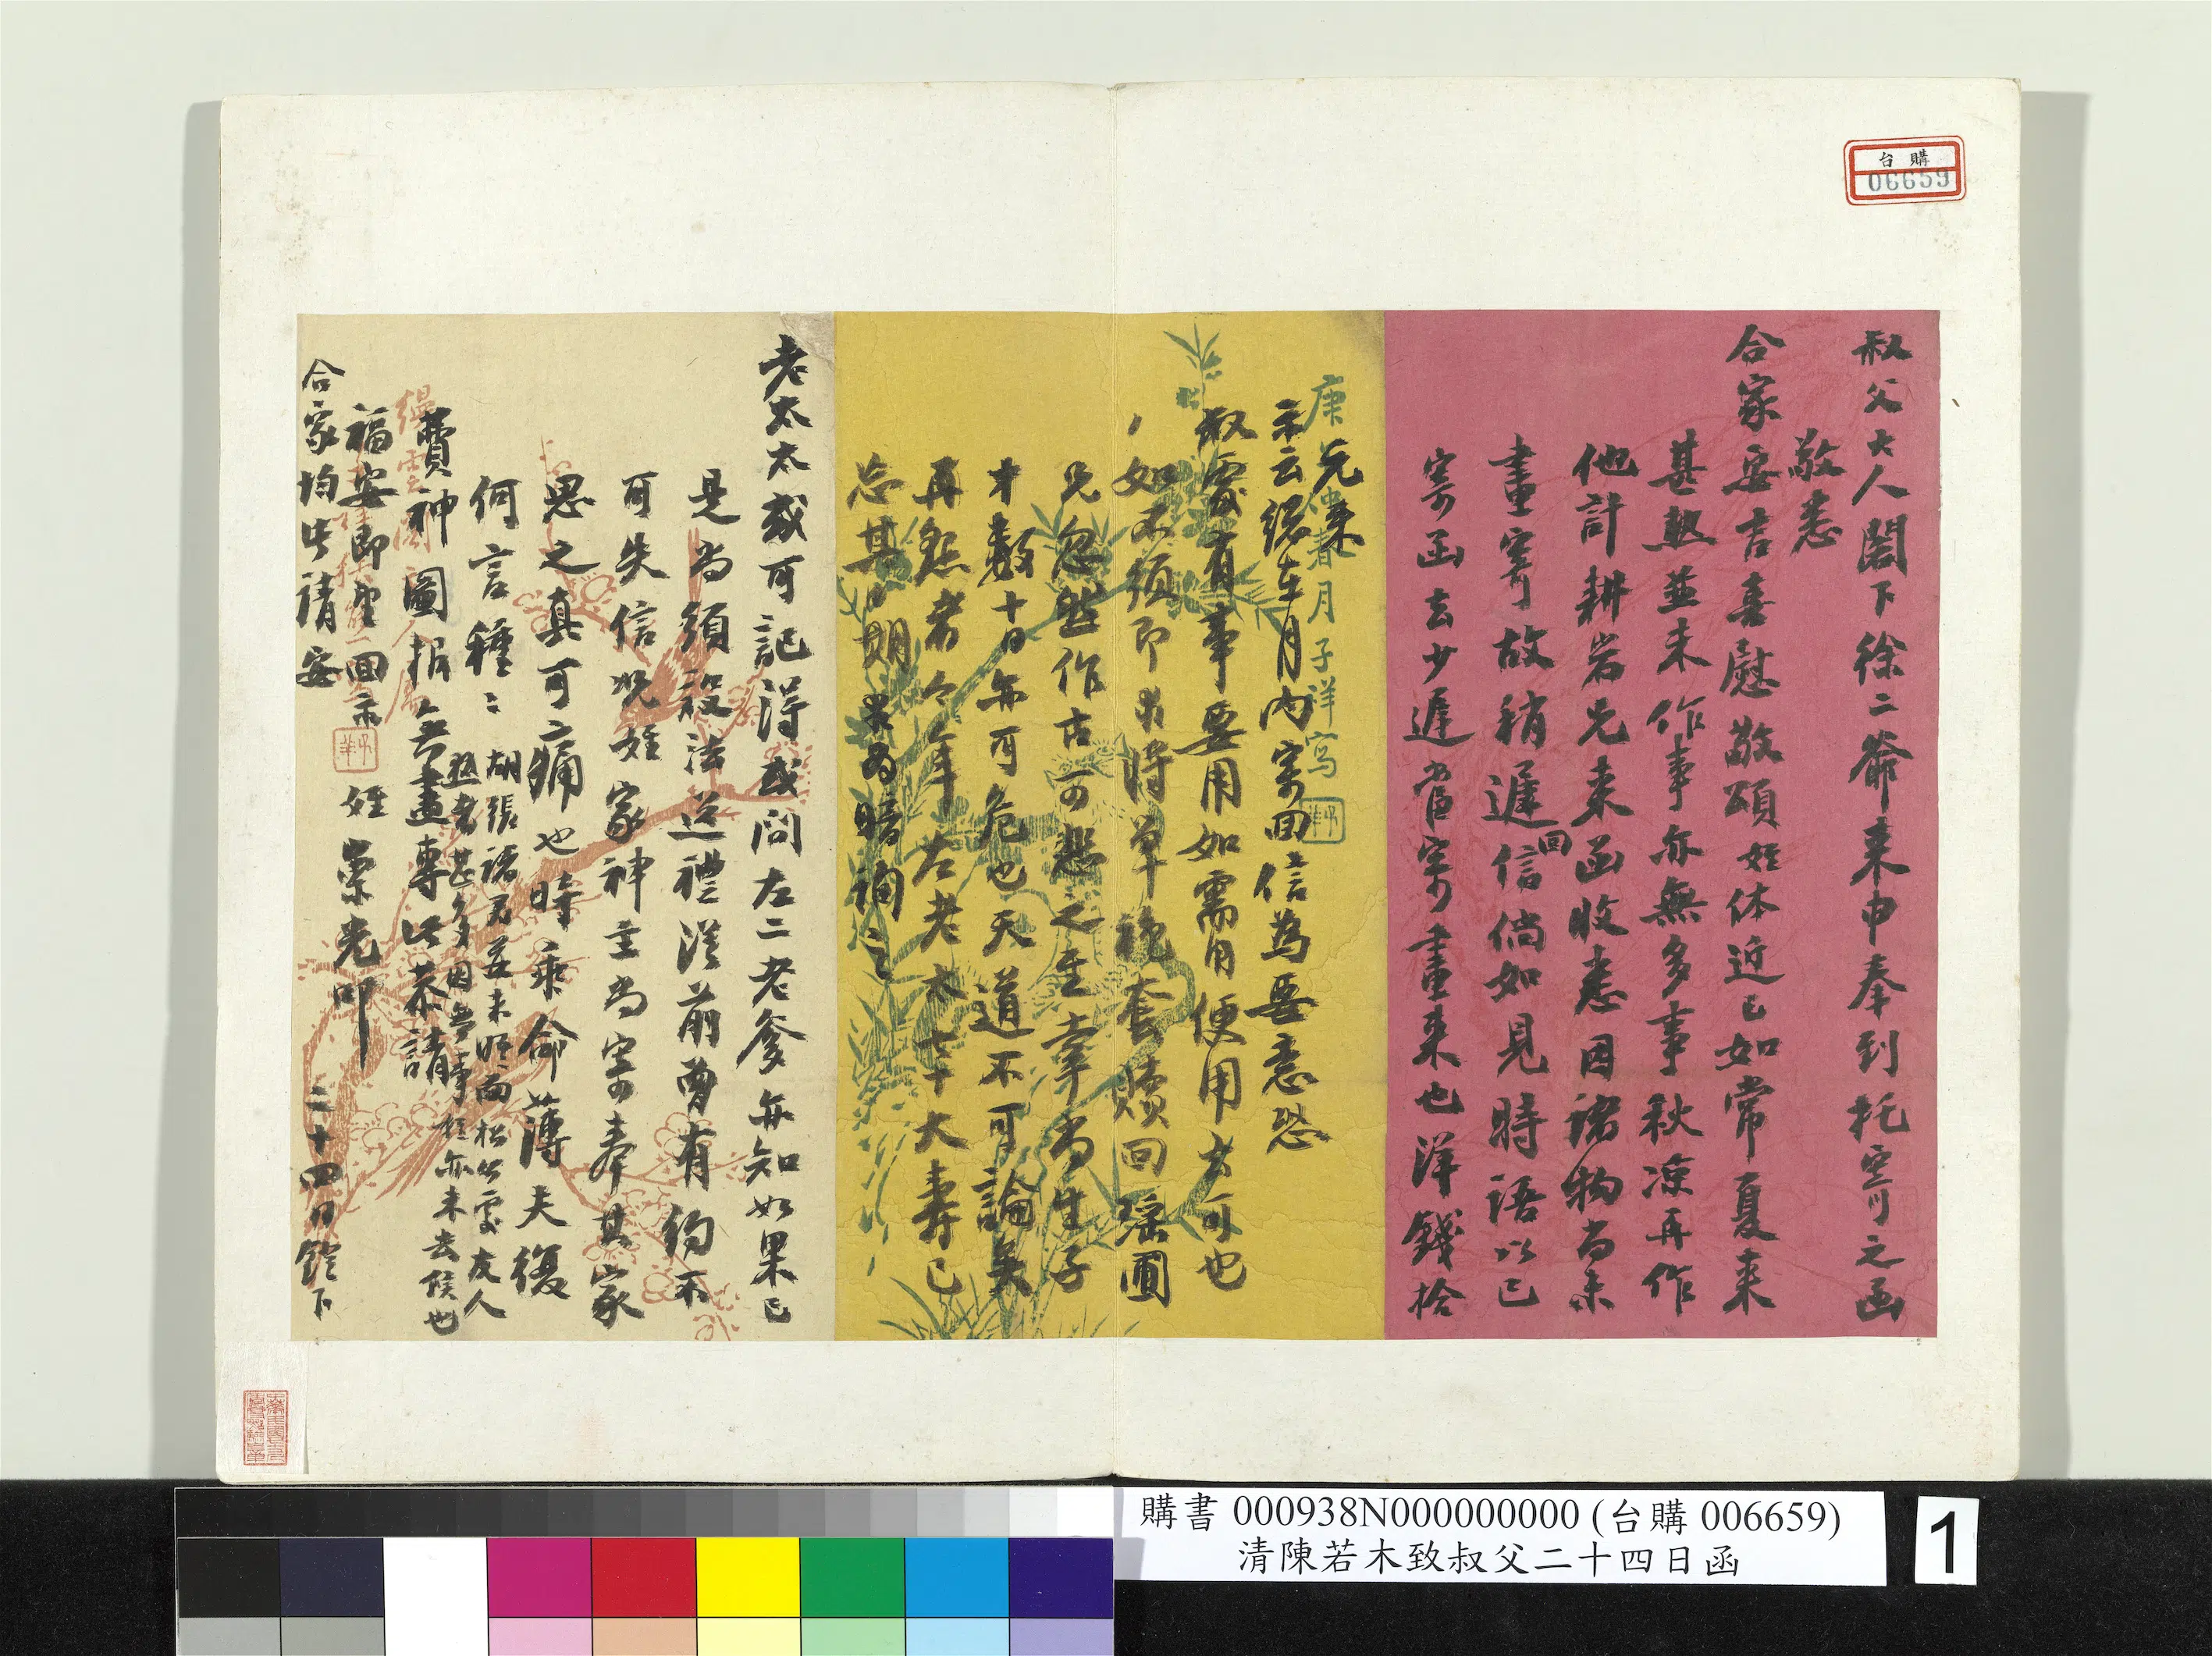 台購
06659
叔父大人閣下徐二爺來申奉到托寄之函
敬悉
合家安吉喜慰敬頌姪体近已如常夏來
甚熱並未作事亦無多事秋涼再作
他計耕岩兄來函收悉因諸物尚未
畫寄故稍遲回信倘如見時語以已
寄函去少遲當寄畫來也洋錢拾
元來
示云總在月內寄回信為要悉恐
叔處有事要用如需用便用去可也
如不須即求將單襪套贖回瑶圃
兄忽然作古可悲之至幸尚生子
才數十日亦可危也天道不可論矣
再懇者今年左老太七十大壽已
忘其期求為暗詢之
庚辰春月子祥寫
老太太或可記得或問左二老爹亦知如果已
是尚須設法送禮從前曾有約不
可失信況姪家神主尚寄奉其家
思之真可痛也時乖命薄夫復
何言種種胡張諸君並未晤面松公處友人
熟者甚多因無事故亦未去候也
費神圖報無盡專此恭請
福安即望回示 姪崇光叩
合家均此請安 二十四日鐙下
購書 000938N000000000 (台購 006659)
清陳若木致叔父二十四日函
1